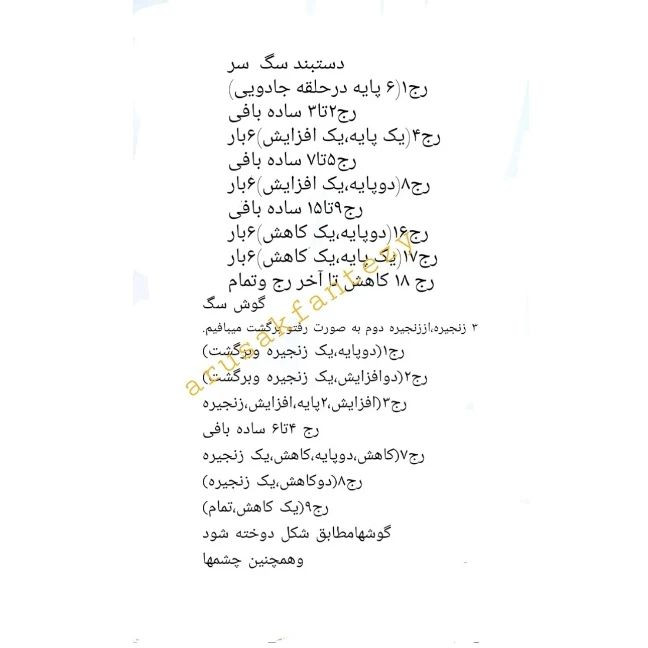 دستبند سگ سر
رج۱(۶ پایه درحلقه جادویی)
رج۲تا۳ ساده بافی
رج۴(یک پایه،یک افزایش)۶بار
رج۵تا۷ ساده بافی
رج۸(دوپایه،یک افزایش)۶بار
رج۹تا۱۵ ساده بافی
رج۱۶(دوپایه،یک کاهش)۶بار
رج۱۷(یک پایه،یک کاهش)۶بار
رج ۱۸ کاهش تا آخر رج وتمام
گوش سگ
۳ زنجیره،اززنجیره دوم به صورت رفتو برگشت میبافیم.
رج۱(دوپایه،یک زنجیره وبرگشت)
رج۲(دوافزایش،یک زنجیره وبرگشت)
رج۳(افزایش،۲پایه،افزایش،زنجیره
رج ۴تا۶ ساده بافی
رج۷(کاهش،دوپایه،کاهش،یک زنجیره
رج۸(دوکاهش،یک زنجیره)
رج۹(یک کاهش،تمام)
گوشهامطابق شکل دوخته شود
وهمچنین چشمها
arusakfantezy